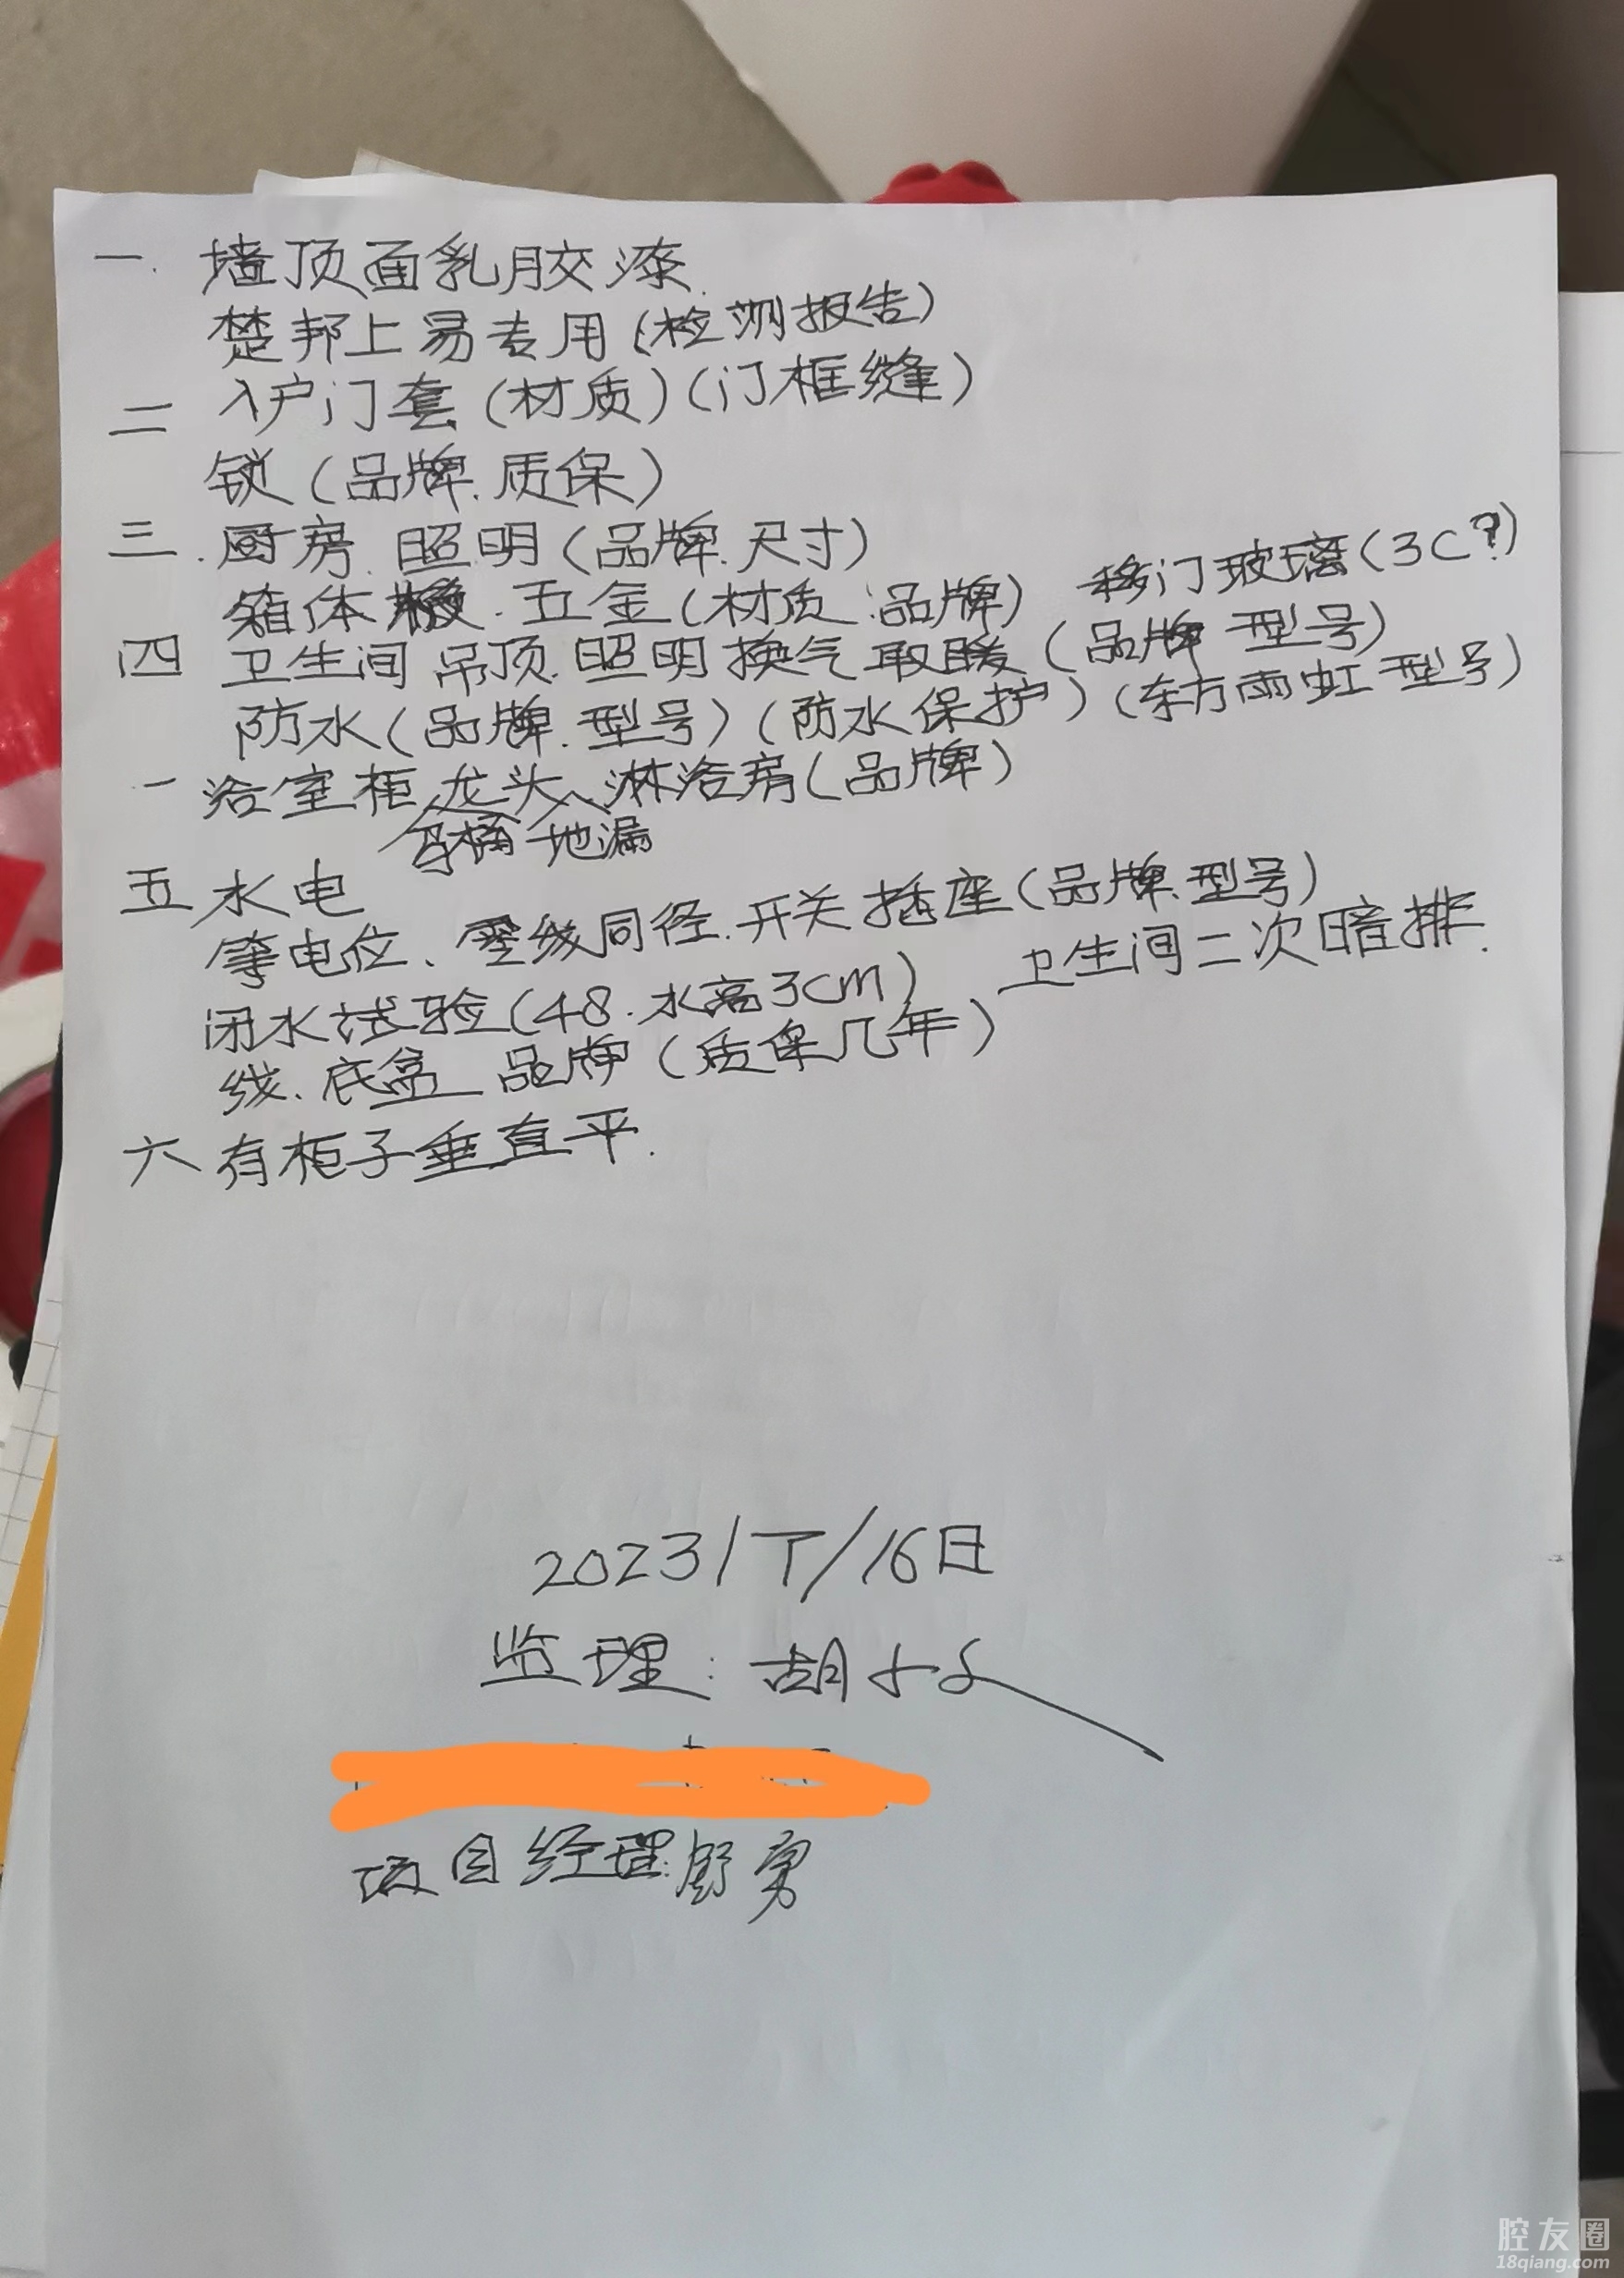 一. 墙顶面乳胶漆.
楚邦上易专用(检测报告)
二 入户门套(材质)(门框缝)
锁(品牌.质保)
三. 厨房.照明(品牌.尺寸)
箱体 .五金(材质.品牌) 移门玻璃(3C?)
四 卫生间 吊顶.照明换气取暖(品牌 型号)
防水(品牌.型号)(防水保护)(东方雨虹型号)
一 浴室柜 龙头、淋浴房(品牌)
马桶 地漏
五 水电
等电位、零线同径.开关插座(品牌.型号)
闭水试验(48.水高3cm) 卫生间二次暗排.
线.底盒 品牌(质保几年)
六 有柜子垂直平.
2023/7/16日
监理:胡
项目经理:舒勇
腔友圈
18qiang.com